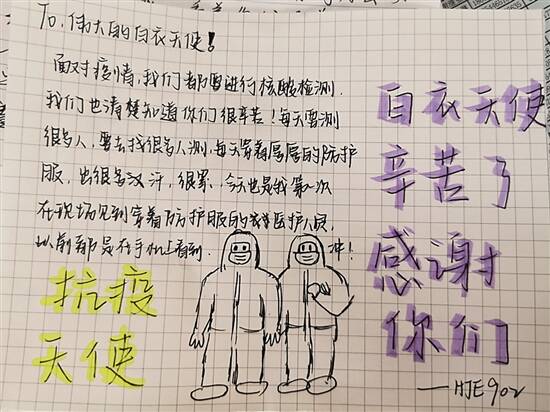 To. 伟大的白衣天使!
面对疫情,我们都要进行核酸检测.
我们也清楚知道你们很辛苦!每天要测
很多人,要去找很多人测,每天穿着厚厚的防护
服,出很多汗,很累,今天也是我第一次
在现场见到穿着防护服的医护人员,
以前都是在手机上看到.
冲!
抗疫
天使
白衣天使
辛苦了
感谢
你们
——HJE902